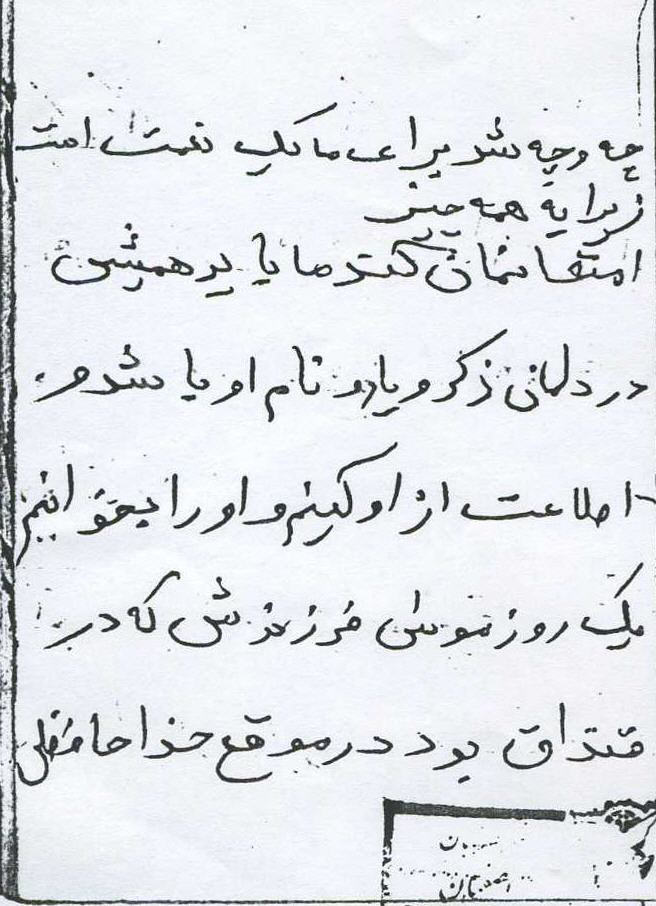 چه وچه شد برای ما یک نعمت است
زیرا به همه چیز
امتحانمان کند ما باید همیشه
در دلمان ذکر و یاد و نام او باشد و
اطاعت از او کنیم و او را بخوانیم
یک روز موسی فرزندش که در
قنداق بود در موقع خداحافظی